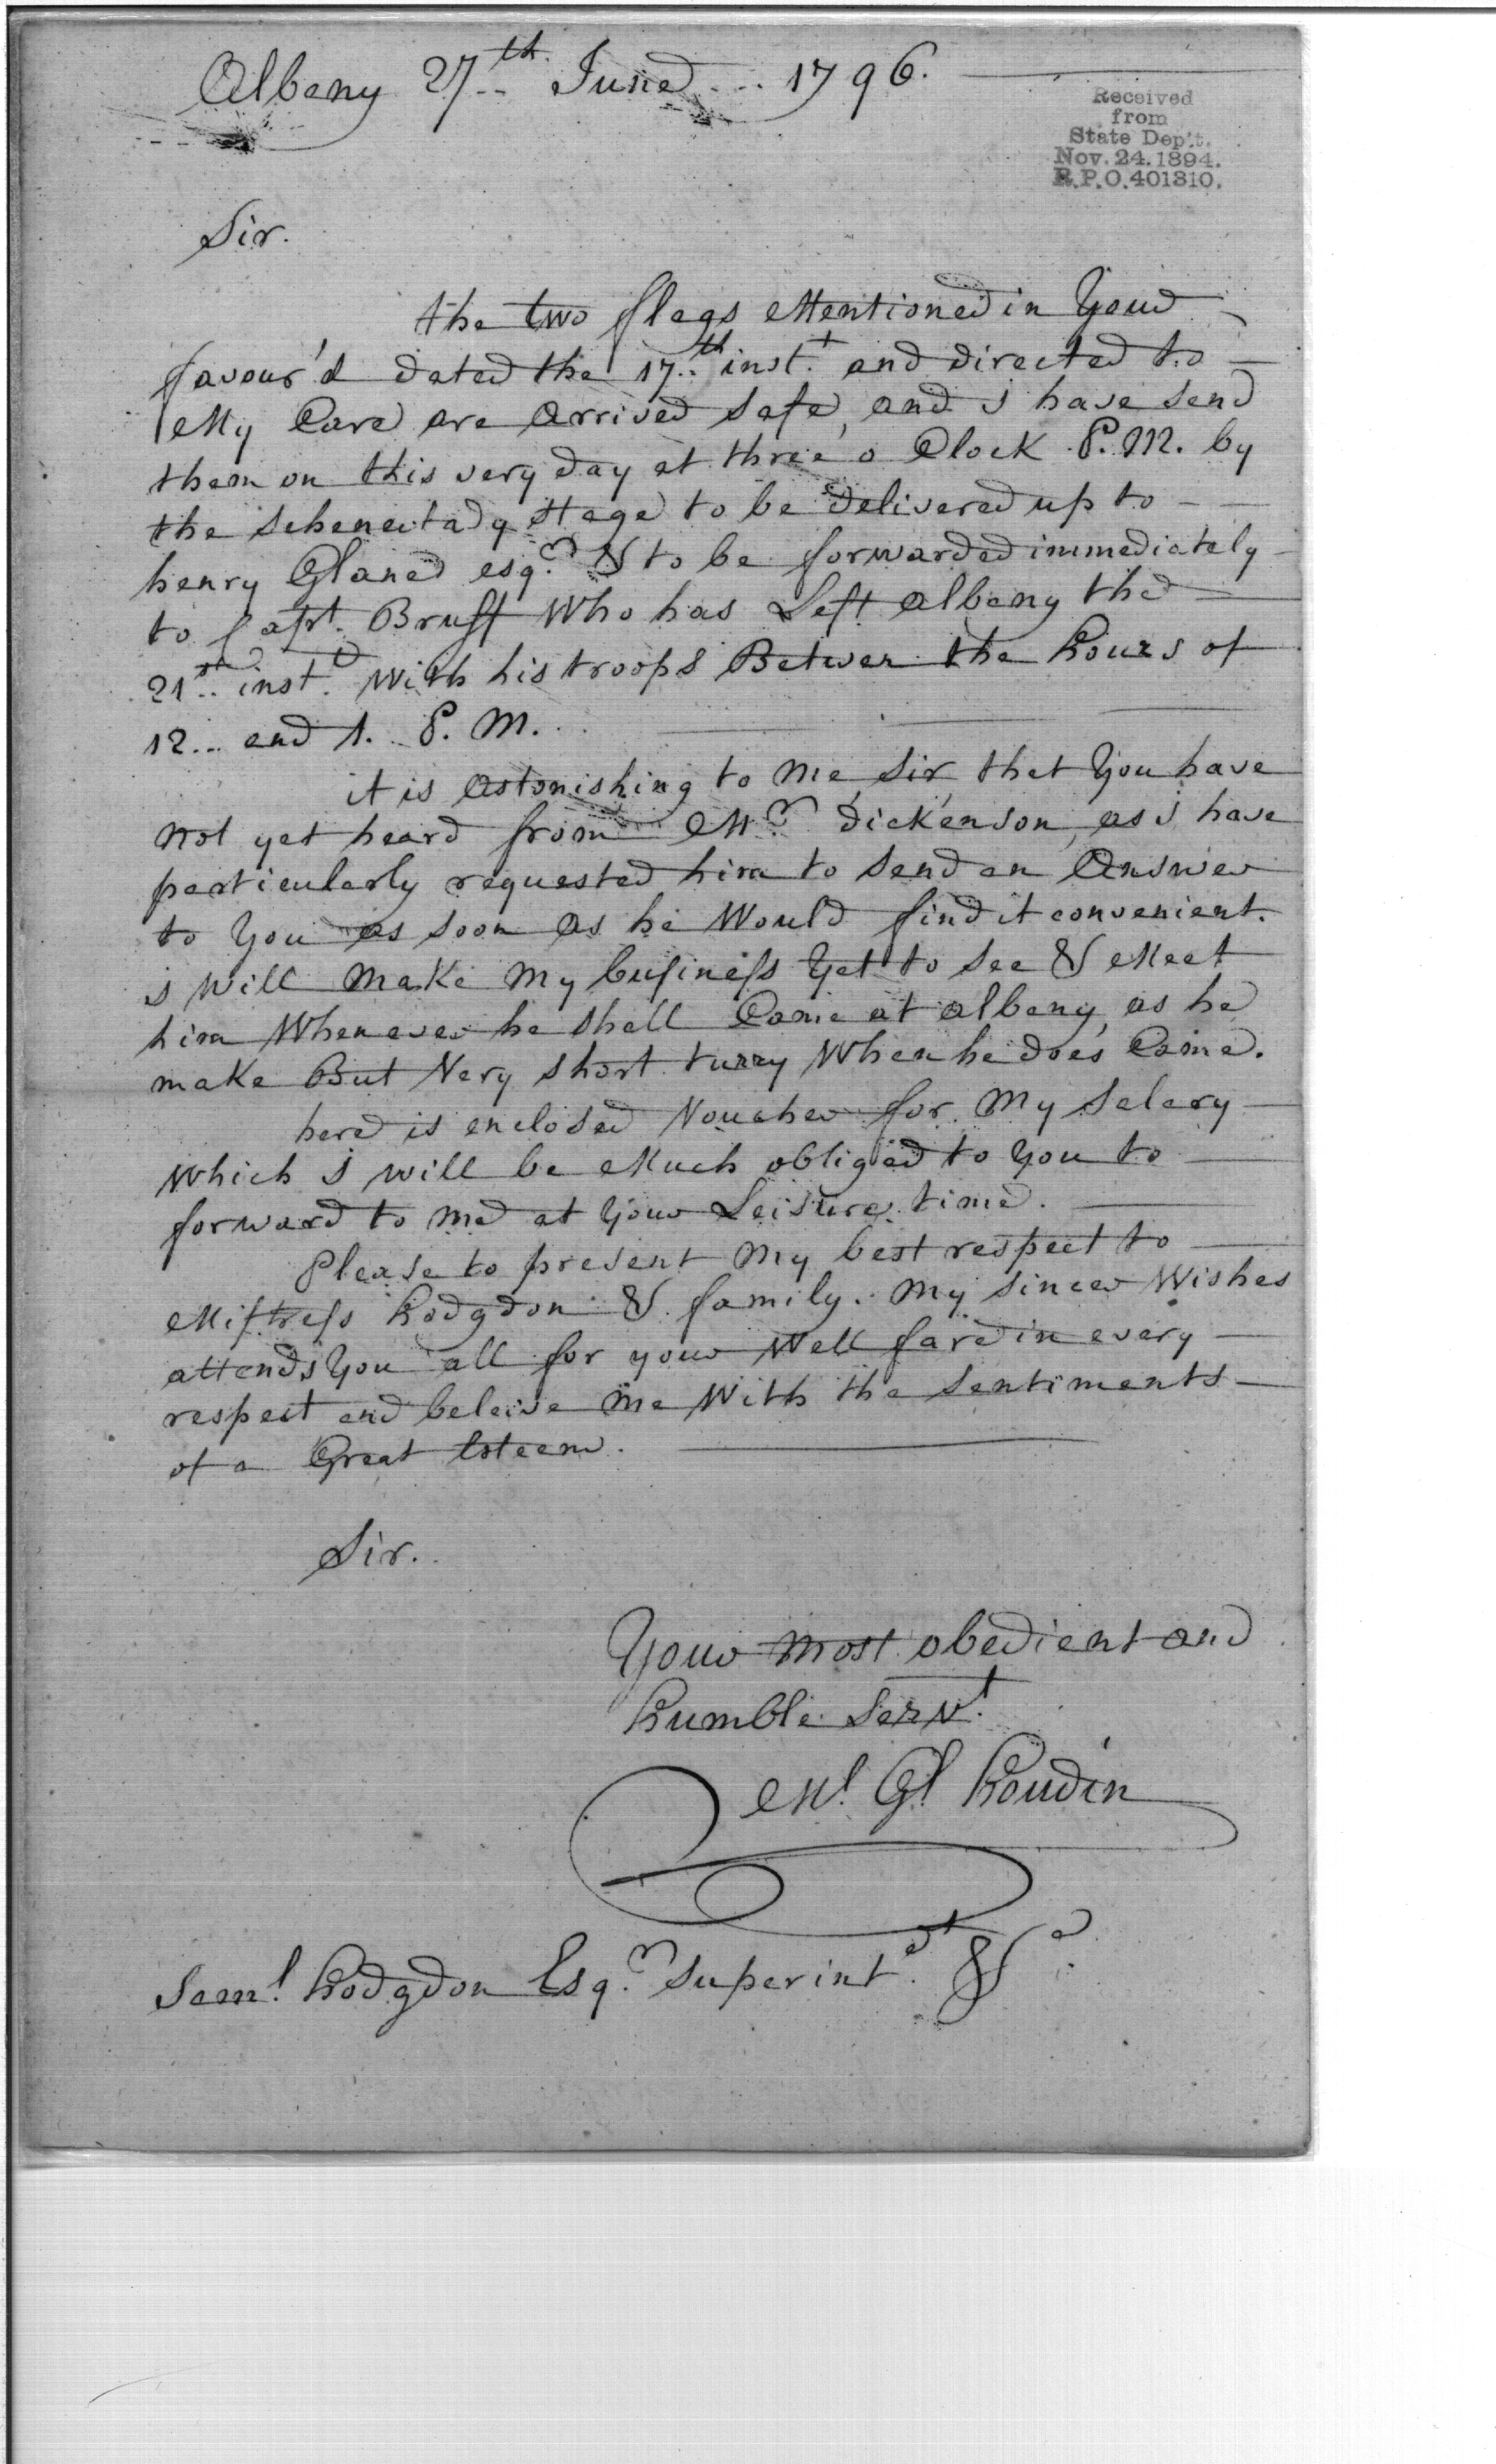 Albany 27th June 1796.
Received
from
State Dep't.
Nov. 24. 1894.
R.P.O. 401310.
Sir.
the two flags Mentioned in Your
favour'd dated the 17th inst. and directed to
My Care are Arrived Safe, and i have Send
them on this very day at three o Clock P.M. by
the Schenectady Stage to be Delivered up to
henry Glane esqr. & to be forwarded immediately
to Capt. Bruff Who has Left Albany the
21st inst. With his troops Betwen the hours of
12 and 1. P.M.
it is Astonishing to Me, Sir, that You have
Not yet heard from Mr. Dickenson, as i have
particularly requested him to Send an Answer
to You as Soon As he Would find it convenient.
i Will Make My business Yet to See & Meet
him Whenever he Shall Come at Albany, as he
make But Very Short tarry When he does Come.
here is enclosed Voucher for My Salery
Which i Will be Much obliged to You to
forward to Me at Your Leisure time.
Please to present My best respect to
Mistress hodgdon & family. My Sincer Wishes
attends You all for your Well fare in every
respect and beleive Me With the Sentiments
of a Great Esteem.
Sir.
Your Most obedient and
humble Servt.
Ml. Gl. houdin
Saml. hodgdon Esqr. Superintdt. &a.